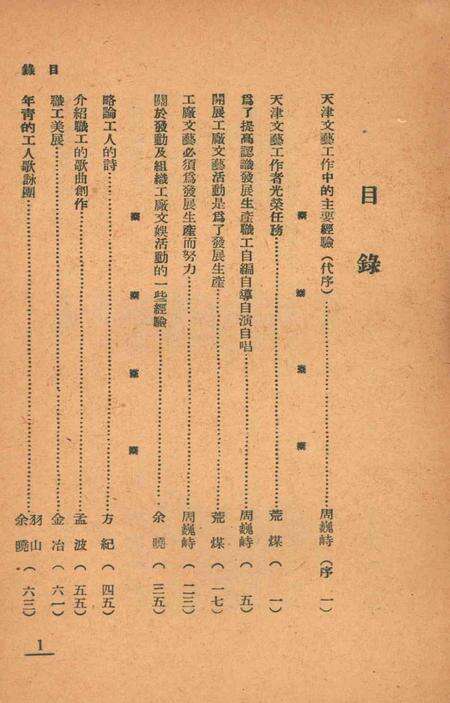 目錄
天津文藝工作中的主要經驗(代序)……周巍峙(序 一)
天津文藝工作者光榮任務……荒煤(一)
爲了提高認識發展生產職工自編自導自演自唱……周巍峙(五)
開展工廠文藝活動是爲了發展生產……荒煤(一七)
工廠文藝必須爲發展生產而努力……周巍峙(二三)
關於發動及組織工廠文娛活動的一些經驗……余曉(三五)
略論工人的詩……方紀(四五)
介紹職工的歌曲創作……孟波(五五)
職工美展……金冶(六一)
年青的工人歌詠團……羽山 余曉(六三)
目錄
1